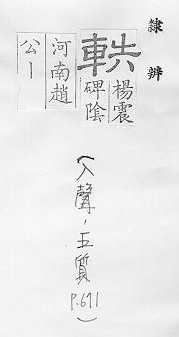 隸辨
軼
楊震
碑陰
河南趙
公丨
（入聲，五質 P.691）